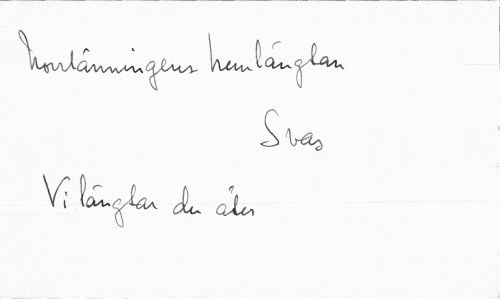 Norrlänningens hemlängtan
Svas
Vi längtar du åter